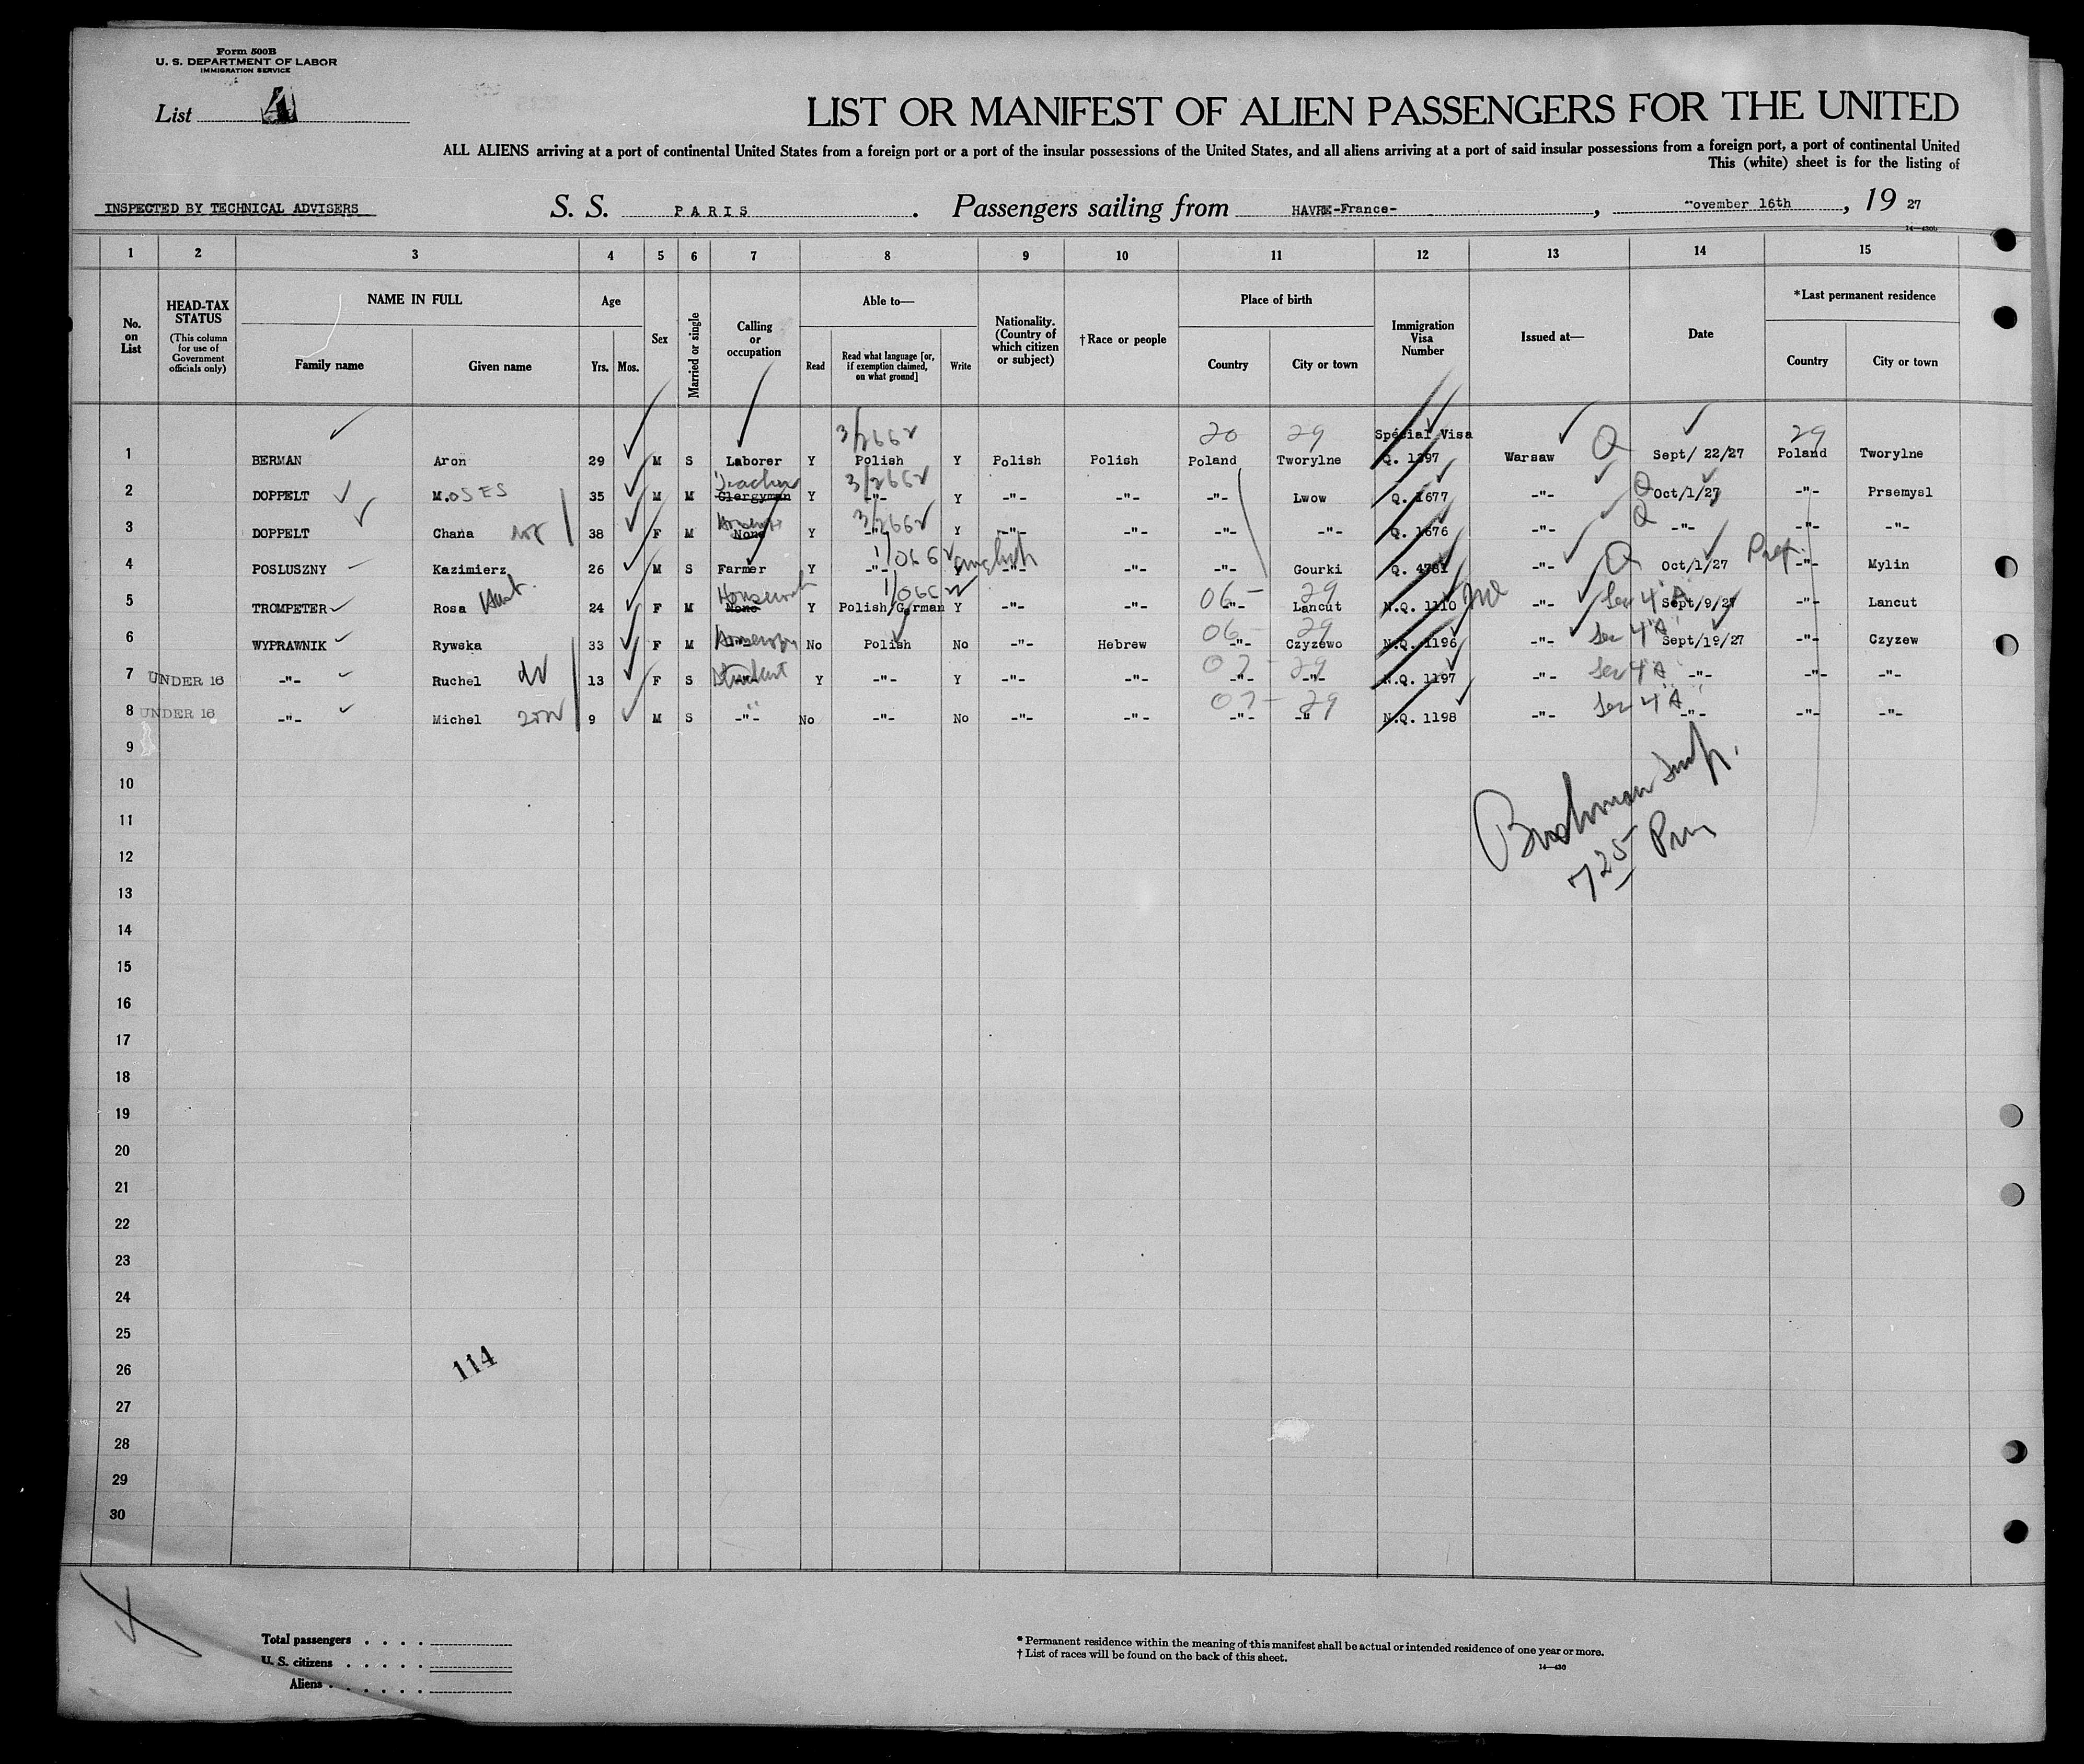 Form 500B
U. S. DEPARTMENT OF LABOR
IMMIGRATION SERVICE
List 4
LIST OR MANIFEST OF ALIEN PASSENGERS FOR THE UNITED
ALL ALIENS arriving at a port of continental United States from a foreign port or a port of the insular possessions of the United States, and all aliens arriving at a port of said insular possessions from a foreign port, a port of continental United
This (white) sheet is for the listing of
INSPECTED BY TECHNICAL ADVISERS S. S. PARIS. Passengers sailing from HAVRE-France-, ovember 16th, 19 27
14—430b
1 2 3 4 5 6 7 8 9 10 11 12 13 14 15
No. on List HEAD-TAX STATUS (This column for use of Government officials only) NAME IN FULL Family name Given name Age Yrs. Mos. Sex Married or single Calling or occupation Able to— Read Read what language [or, if exemption claimed, on what ground] Write Nationality. (Country of which citizen or subject) †Race or people Place of birth Country City or town Immigration Visa Number Issued at— Date *Last permanent residence Country City or town
3/2662 20 29 Spécial Visa Q 29
1 BERMAN Aron 29 M S Laborer Y Polish Y Polish Polish Poland Tworylne Q. 1397 Warsaw Sept/ 22/27 Poland Tworylne
Teacher 3/2662 Q
2 DOPPELT M.OSES 35 M M Clergyman Y -"- Y -"- -"- -"- Lwow Q. 1677 -"- Oct/1/27 -"- Prsemysl
3/2662 Q
3 DOPPELT Chana 38 F M None Y -"- Y -"- -"- -"- -"- Q. 1676 -"- -"- -"- -"-
1/0662 English Q Pref.
4 POSLUSZNY Kazimierz 26 M S Farmer Y -"- Y -"- -"- -"- Gourki Q. 4781 -"- Oct/1/27 -"- Mylin
Housewife 06- 29 Sec 4"A"
5 TROMPETER Rosa 24 F M None Y Polish/German Y -"- -"- -"- Lancut N.Q. 1110 -"- Sept/9/27 -"- Lancut
06- 29 Sec 4"A"
6 WYPRAWNIK Rywska 33 F M -"- No Polish No -"- Hebrew -"- Czyzewo N.Q. 1196 -"- Sept/19/27 -"- Czyzew
Student 07- 29 Sec 4"A"
7 UNDER 16 -"- Ruchel 13 F S -"- Y -"- Y -"- -"- -"- -"- N.Q. 1197 -"- -"- -"- -"-
07- 29 Sec 4"A"
8 UNDER 16 -"- Michel 9 M S -"- No -"- No -"- -"- -"- -"- N.Q. 1198 -"- -"- -"- -"-
9
10
11
12
13
14
15
16
17
18
19
20
21
22
23
24
25
26
27
28
29
30
Bushman Insp.
725 Pm
114
Total passengers . . . .
U. S. citizens . . . . .
Aliens . . . . . .
* Permanent residence within the meaning of this manifest shall be actual or intended residence of one year or more.
† List of races will be found on the back of this sheet.
14—430